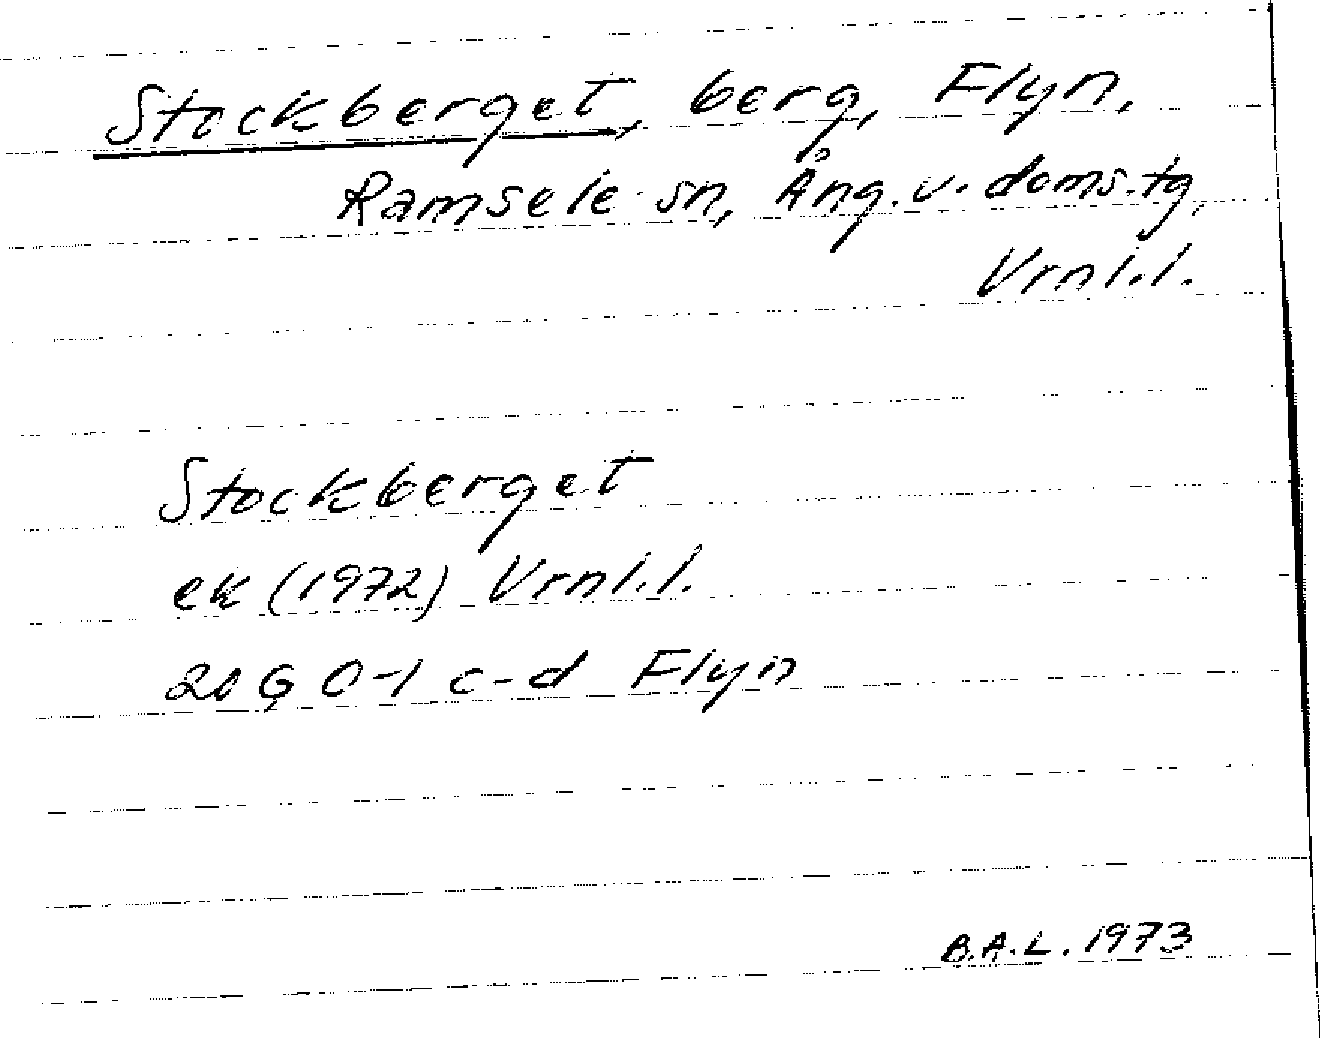 Stockberget, berg, Flyn,
Ramsele sn, Ång. v. doms. tg,
Vrnl.l.
Stockberget
ek (1972) Vrnl.l.
20 G 0-1 c-d Flyn
B.A.L. 1973